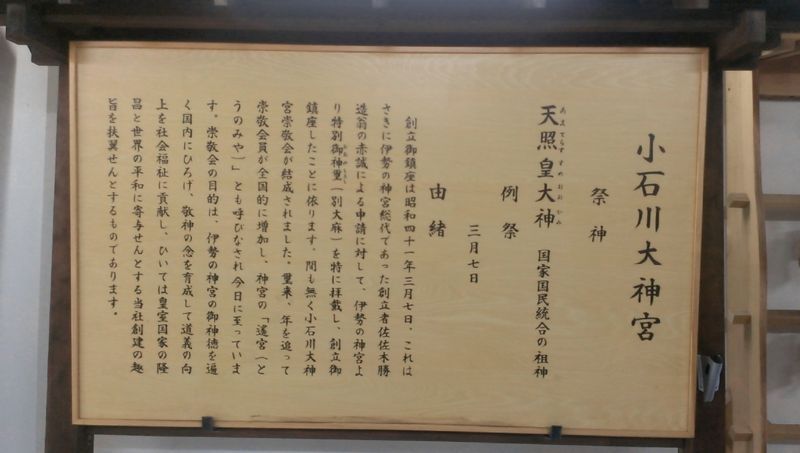 小石川大神宮
祭神
天照皇大神 国家国民統合の祖神
あまてらすすめおおかみ
例祭
三月七日
由緒
創立御鎮座は昭和四十一年三月七日、これは
さきに伊勢の神宮総代であった創立者佐佐木勝
造翁の赤誠による申請に対して、伊勢の神宮よ
り特別御神璽（別大麻）を特に拝戴し、創立御
鎮座したことに依ります。間も無く小石川大神
宮崇敬会が結成されました。爾来、年を追って
崇敬会員が全国的に増加し、神宮の「遙宮（と
うのみや）」とも呼びなされ今日に至っていま
す。崇敬会の目的は、伊勢の神宮の御神徳を遍
く国内にひろげ、敬神の念を育成して道義の向
上を社会福祉に貢献し、ひいては皇室国家の隆
昌と世界の平和に寄与せんとする当社創建の趣
旨を扶翼せんとするものであります。